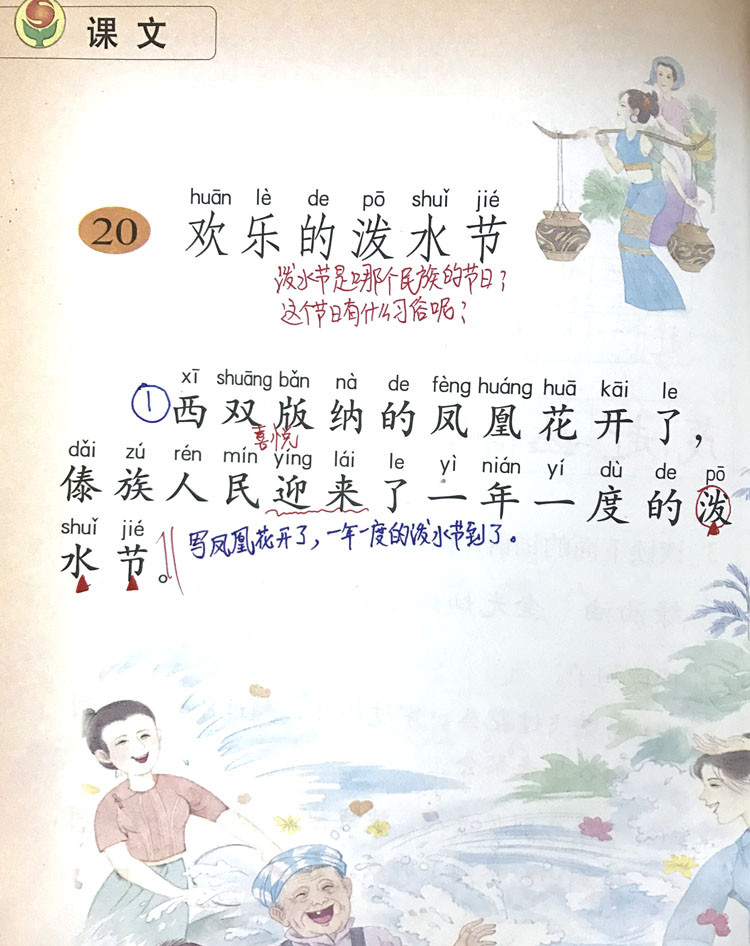 课文
huān lè de pō shuǐ jié
20 欢乐的泼水节
泼水节是哪个民族的节日?
这个节日有什么习俗呢?
xī shuāng bǎn nà de fèng huáng huā kāi le
① 西双版纳的凤凰花开了，
喜悦
dǎi zú rén mín yíng lái le yì nián yí dù de pō
傣族人民迎来了一年一度的泼
shuǐ jié
水节。
写凤凰花开了，一年一度的泼水节到了。